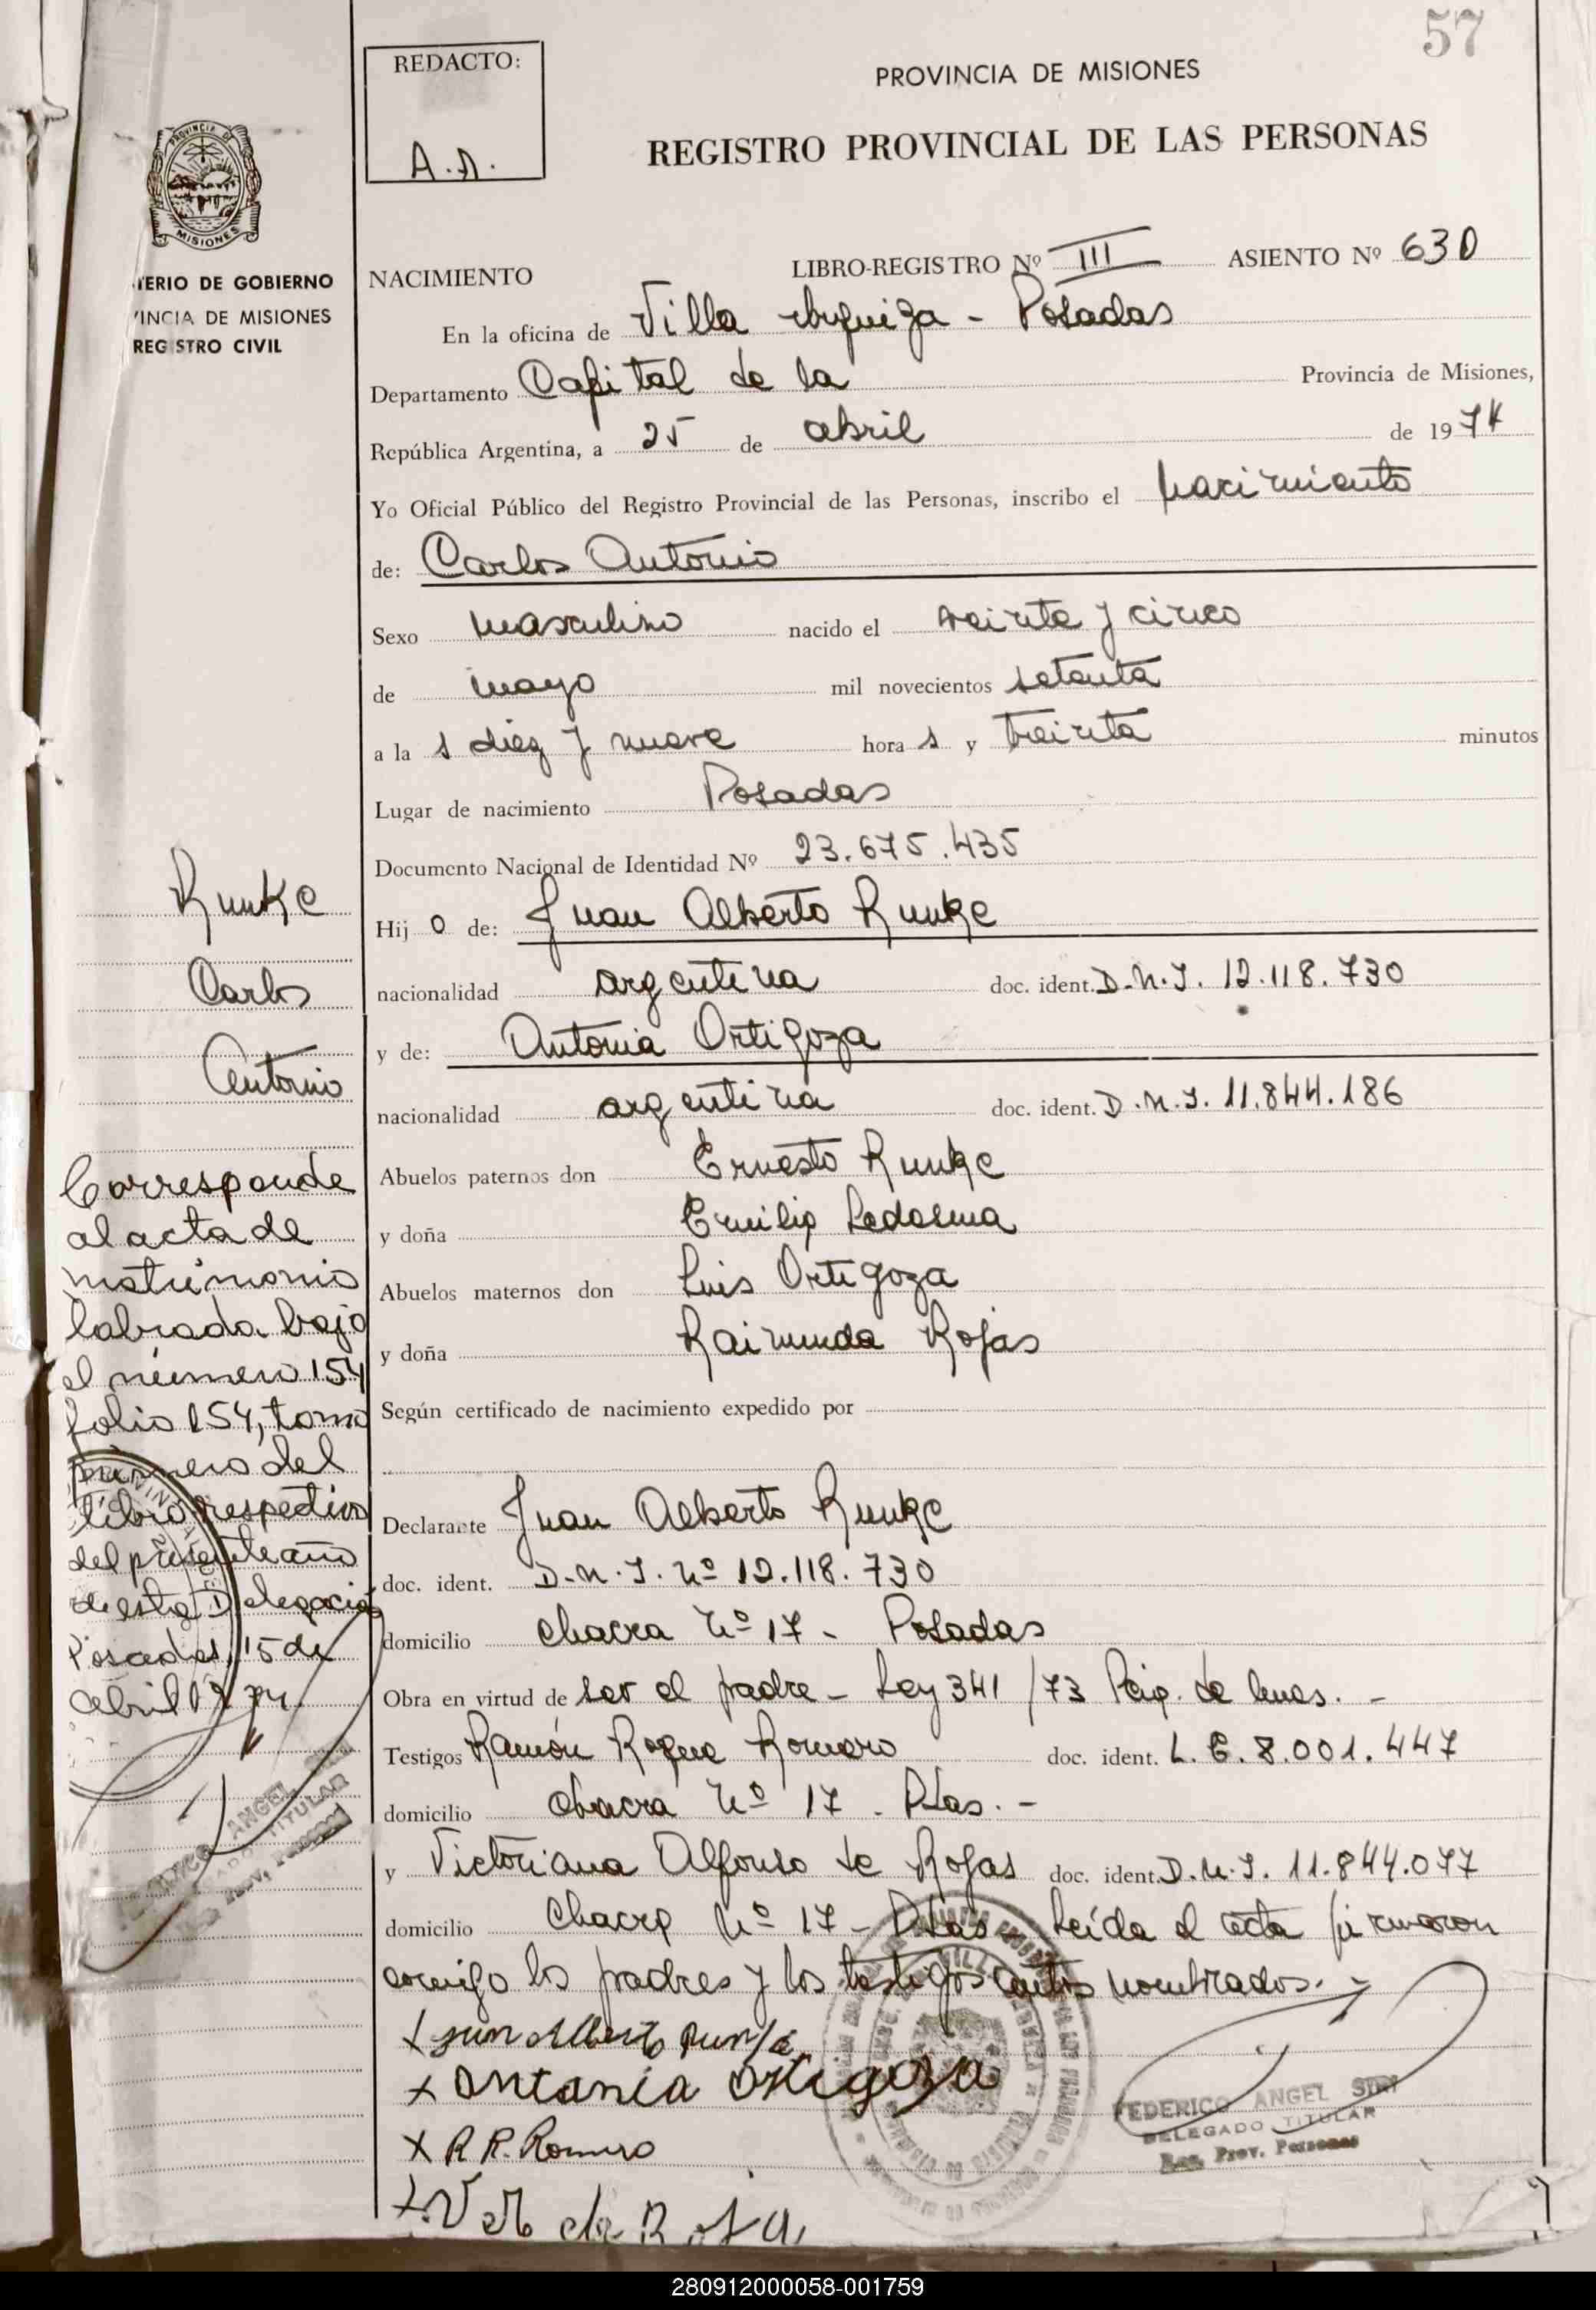 57
REDACTO:
A.A.
PROVINCIA DE MISIONES
REGISTRO PROVINCIAL DE LAS PERSONAS
PROVINCIA DE
MISIONES
TERIO DE GOBIERNO
VINCIA DE MISIONES
REGISTRO CIVIL
NACIMIENTO LIBRO-REGISTRO Nº III ASIENTO Nº 630
En la oficina de Villa Urquiza - Posadas
Departamento Capital de la Provincia de Misiones,
República Argentina, a 25 de abril de 1974
Yo Oficial Público del Registro Provincial de las Personas, inscribo el nacimiento
de: Carlos Antonio
Sexo masculino nacido el veinte y cinco
de mayo mil novecientos setenta
a la s diez y nueve hora s y treinta minutos
Lugar de nacimiento Posadas
Documento Nacional de Identidad Nº 23.675.435
Hij o de: Juan Alberto Runke
nacionalidad argentina doc. ident. D.N.I. 12.118.730
y de: Antonia Ortigoza
nacionalidad argentina doc. ident. D.N.I. 11.844.186
Abuelos paternos don Ernesto Runke
y doña Emilia Ledesma
Abuelos maternos don Luis Ortigoza
y doña Raimunda Rojas
Según certificado de nacimiento expedido por
Declarante Juan Alberto Runke
doc. ident. D.N.I. Nº 12.118.730
domicilio chacra Nº 17 - Posadas
Obra en virtud de ser el padre - Ley 341/73 Reig. de
Testigos Ramón Roque Romero doc. ident. L.E. 8.001.447
domicilio chacra Nº 17 - Pdas. -
y Victoriana Alfonso de Rojas doc. ident. D.N.I. 11.844.077
domicilio Chacra Nº 17 - Pdas. Leída el acta firmaron
conmigo los padres y los testigos antes nombrados. -
x Juan Alberto Runke
x Antonia Ortigoza
x R. R. Romero
x V de Roja
FEDERICO ANGEL SIRI
DELEGADO TITULAR
Reg. Prov. Personas
Runke
Carlos
Antonio
Corresponde
al acta de
matrimonio
labrada bajo
el número 154
folio 154, tomo
primero del
libro respectivo
del presente año
de esta Delegación
Posadas, 15 de
abril 1974.
FEDERICO ANGEL SIRI
DELEGADO TITULAR
Reg. Prov. Personas
280912000058-001759